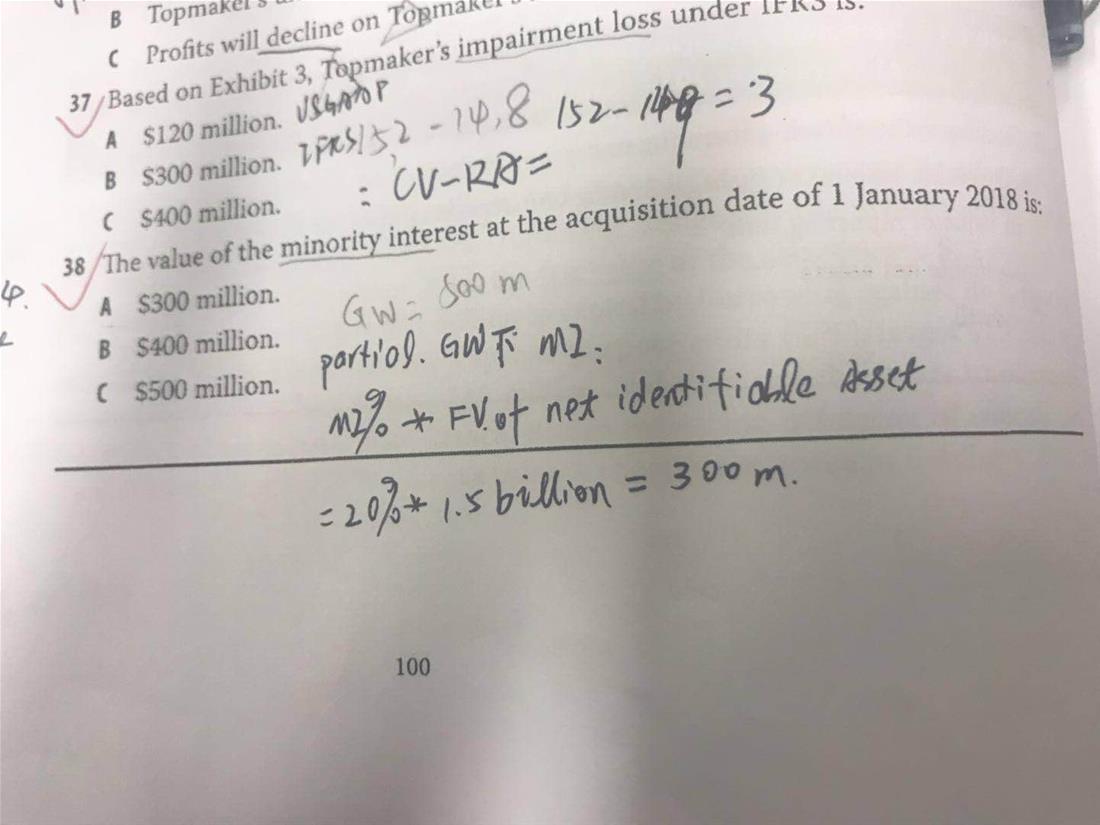 B Topmaker's
C Profits will decline on Topmaker's
37 Based on Exhibit 3, Topmaker's impairment loss under IFRS is:
A $120 million. USGAAP
B $300 million. IFRS 15.2 - 14.8 152-149=3
C $400 million. = CV-RA=
38 The value of the minority interest at the acquisition date of 1 January 2018 is:
A $300 million.
GW = 500 m
B $400 million.
partial. GW下 MI:
C $500 million.
MI% * FV of net identifiable Asset
=20%* 1.5 billion = 300 m.
100